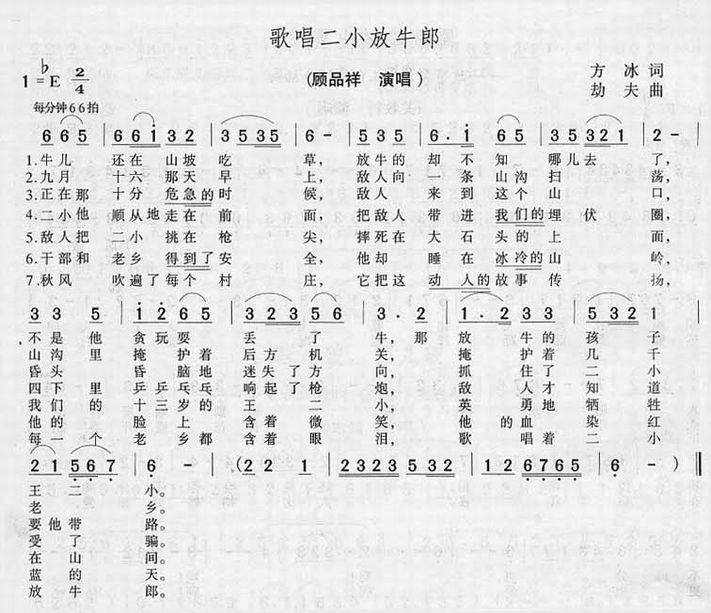 歌唱二小放牛郎
1=♭E 2/4 (顾品祥 演唱) 方冰词
每分钟66拍 劫夫曲
6 6 5 | 6 6 i 3 2 | 3 5 3 5 | 6 - | 6 6 5 | 6. i | 3 5 3 2 1 | 2 - |
1.牛儿 还在 山坡 吃 草, 放牛的 却不 知 哪儿去 了,
2.九月 十六 那天 早 上, 敌人向 一条 山沟 扫 荡,
3.正在那 十分 危急的 时 候, 敌人 来到 这个 山 口,
4.二小他 顺从地 走在 前 面, 把敌人 带进 我们的 埋伏 圈,
5.敌人把 二小 挑在 枪 尖, 摔死在 大石 头的 上 面,
6.干部和 老乡 得到了 安 全, 他却 睡在 冰冷的 山 岭,
7.秋风 吹遍了 每个 村 庄, 它把这 动人的 故事 传 扬,
不是 他 贪玩耍 丢了 牛, 那 放牛的 孩 子
山沟 里 掩护着 后方机 关, 掩护着 几 千
昏头 昏脑地 迷失了方 向, 抓住了 二 小
四下 里 乒乓乓 响起了枪 炮, 敌人才 知 道
我们 的 十三岁的 王二 小, 英勇地 牺 牲
他 的 脸上 含着微 笑, 他的血 染 红
每一 个 老乡都 含着眼 泪, 歌唱着 二 小
王二 小。
老 乡。
要他带 路。
受了 骗。
在山 间。
蓝的 天。
放牛 郎。